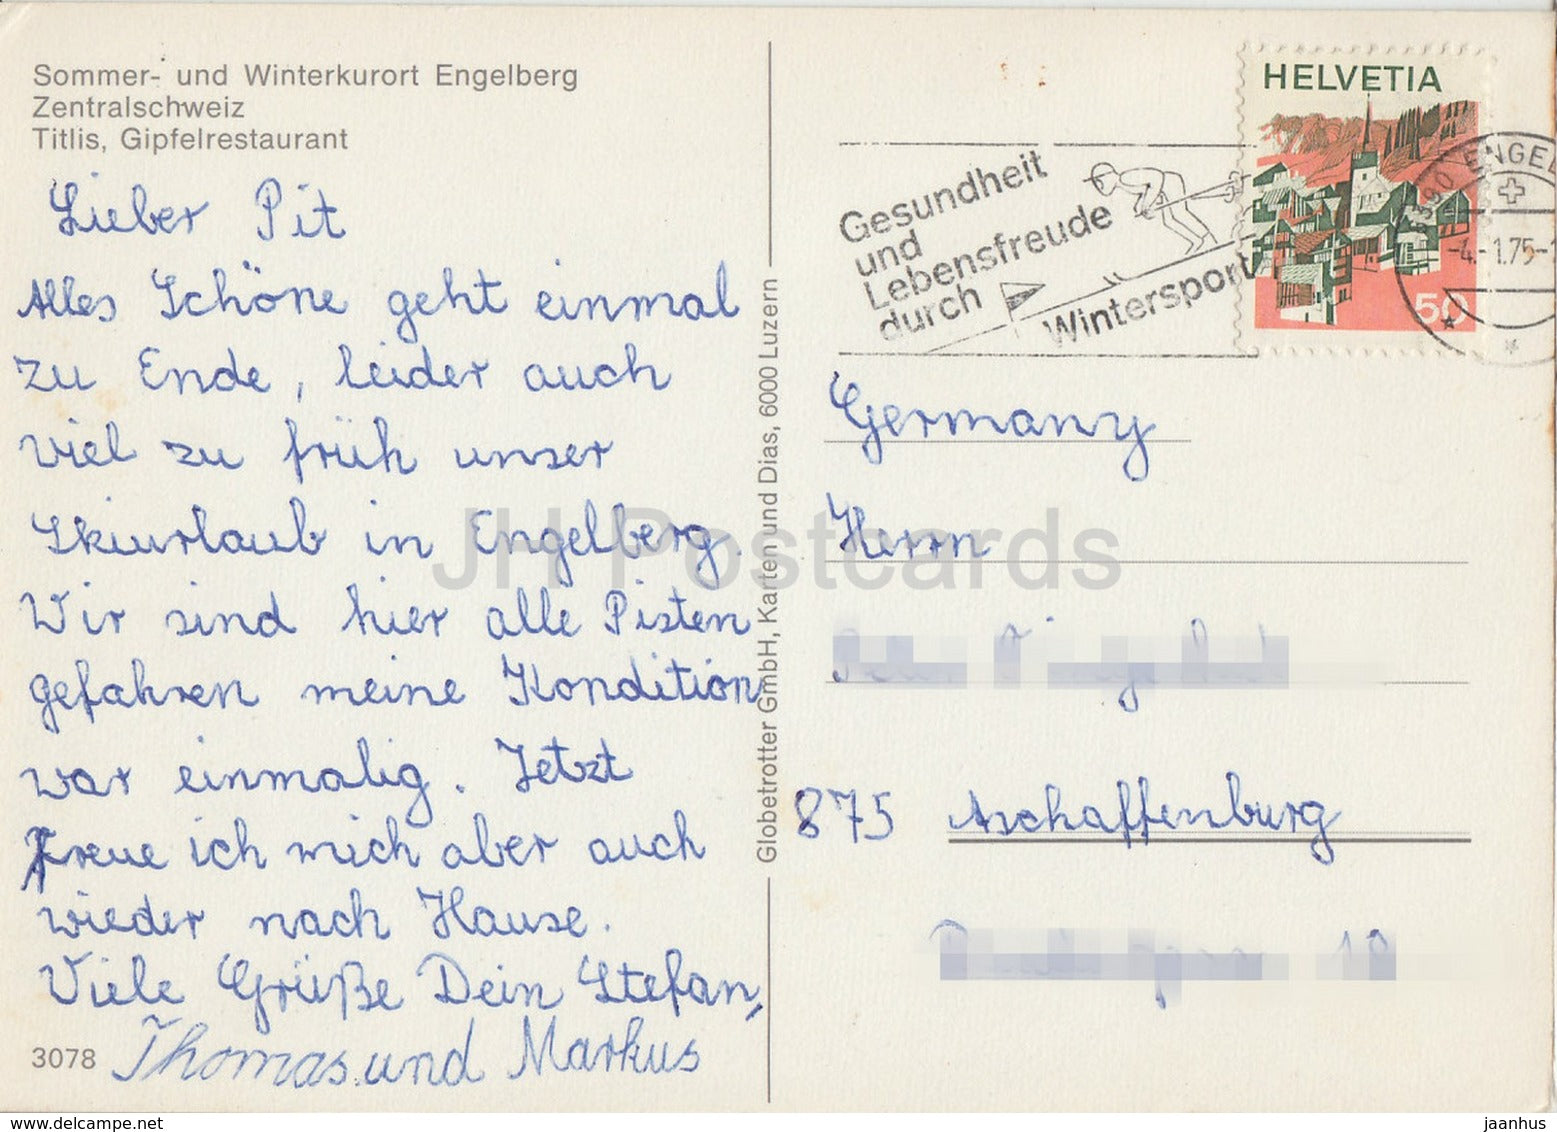 Sommer- und Winterkurort Engelberg
Zentralschweiz
Titlis, Gipfelrestaurant
Lieber Pit
Alles Schöne geht einmal
zu Ende, leider auch
viel zu früh unser
Skiurlaub in Engelberg.
Wir sind hier alle Pisten
gefahren meine Kondition
war einmalig. Jetzt
Freue ich mich aber auch
wieder nach Hause.
Viele Grüße Dein Stefan,
Thomas und Markus
3078
Globetrotter GmbH, Karten und Dias, 6000 Luzern
Gesundheit
und
Lebensfreude
durch
Wintersport
HELVETIA
50
6390 ENGEL
-4.-1.75-1
Germany
Herrn
875 Aschaffenburg
19
JH Postcards
delcampe.net
jaanhus